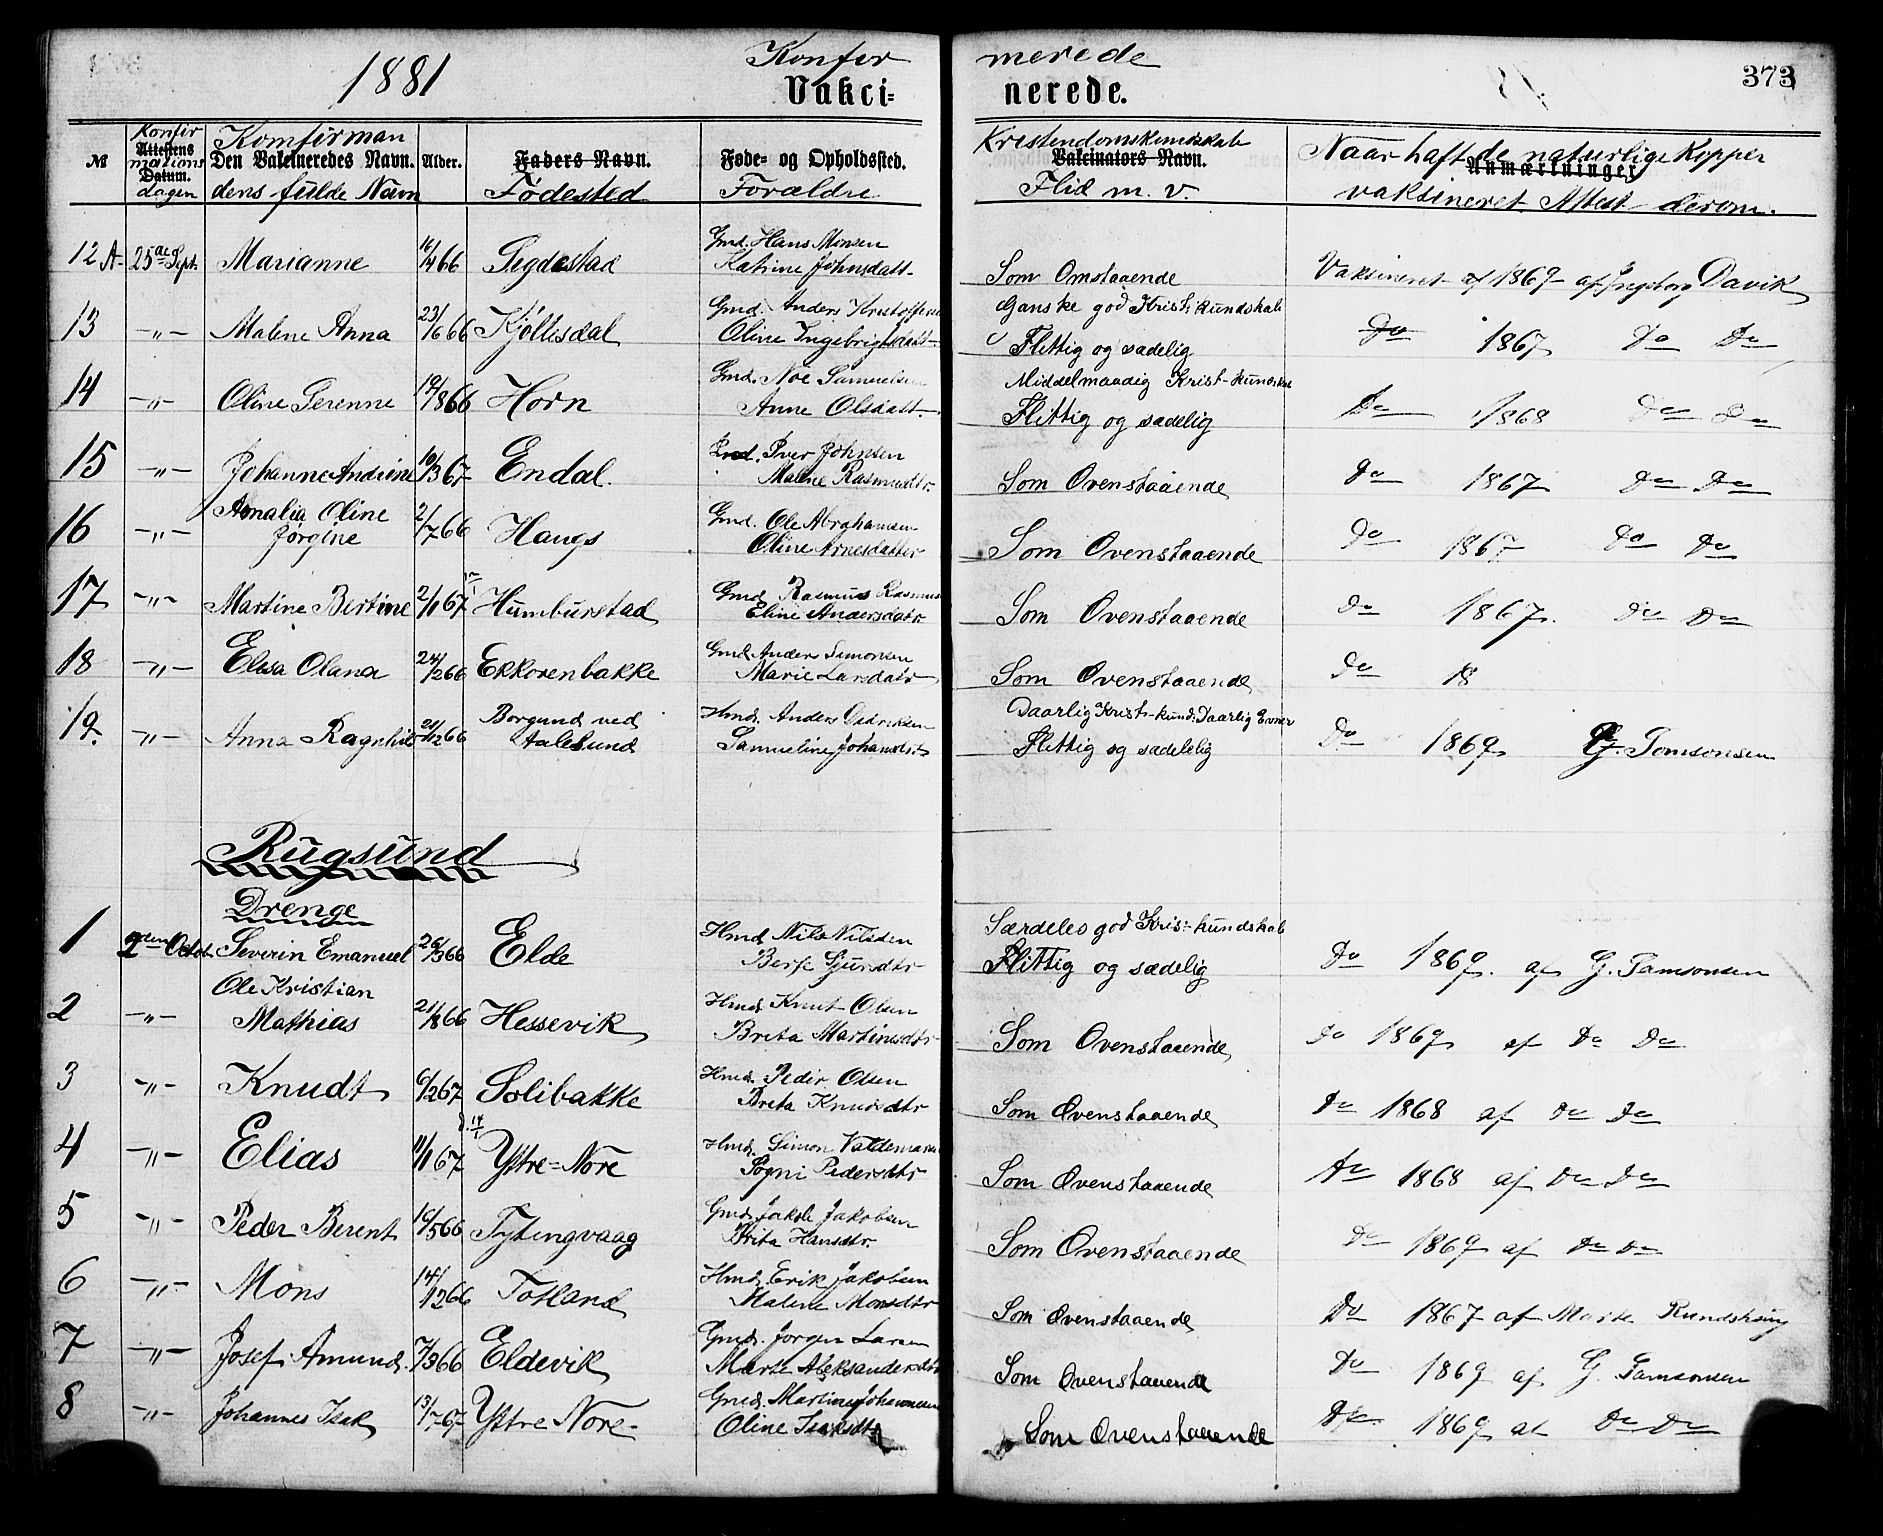 1881 Konfer merede 373
Vakci= nerede.
Konfir Komfirman Krestendomskundskab Naar haft de naturlige Kopper
№ Attestens Den Vakcineredes Navn. Alder. Faders Navn. Føde- og Opholdssted. Vakcinators Navn. Anmærkninger
mations Datum. dagen dens fulde Navn Fødested Forældre Flid m. v. vaksineret. Attest derom.
12 A. 25de Sept. Marianne 16/4 66 Segdestad Gmd. Hans Monsen
Katrine Johnsdatt. Som Omstaaende Vaksineret af 1869 af Ingeborg Davik
13 -„- Malene Anna 23/10 66 Kjøllesdal Gmd. Anders Kristoffers Ganske god Krist: kundskab
Oline Ingebrigtsdatt. Flittig og sædelig Do 1867 Do Do
14 -„- Oline Serenne 19/8 66 Horn Gmd. Noe Samuelsen Middelmaadig Krist-kundskab
Anne Olsdatt. Flittig og sædelig Do 1868 Do Do
15 -„- Johanne Andrine 10/3 67 Endal. Iver Johnsen
Malene Rasmusdtr. Som Ovenstaaende Do 1867 Do Do
16 -„- Amalia Oline Jørgine 2/7 66 Haugs Gmd. Ole Abrahamsen
Oline Arnesdatter Som Ovenstaaende Do 1867 Do Do
17 -„- Martine Bertine 2/1 67 Humburstad Gmd. Rasmus Rasmus
Eline Andersdatr Som Ovenstaaende Do 1867. Do Do
18 -„- Elisa Olana 24/2 66 Ekkorenbakke Gmd. Anders Simonsen
Marie Larsdatr Som Ovenstaaende Do 18
19. -„- Anna Ragnhild 21/12 66 Borgund ved Aalesund Hmd. Anders Daarlig Krist-kund: Daarlig Evner
Samueline Johansdtr Flittig og sædelig Do 1869 G. Tomsonsen
Rugsund
Drenge
1 2den Octob. Severin Emanuel 26/3 66 Elde Hmd. Nils Nilssen Særdeles god Kris: kundskab
Berse Sjursdtr Flittig og sædelig Do 1869. af G. Tamsonsen
2 -„- Ole Kristian Mathias 21/8 66 Hessevik Hmd. Knut Olsen
Brita Martinusdtr Som Ovenstaaende Do 1869 af Do Do
3 -„- Knudt 6/2 67 Solibakke Hmd. Peder Olsen
Brita Knudsdtr Som Ovenstaaende Do 1868 af Do Do
4 -„- Elias 11/1 67 d. 17/1 Ystre=Nore Hmd. Simon Valdemarsen
Sogni Pedersdtr Som Ovenstaaende Do 1868 af Do Do
5 -„- Peder Berent 16/5 66 Tytingvaag Gmd. Jakob Jakobsen
Brita Hansdtr. Som Ovenstaaende Do 1869 af Do Do
6 -„- Mons 14/12 66 Totland Hmd. Erik Jakobsen
Malene Monsdtr Som Ovenstaaende Do 1867 af Marte
7 -„- Josef Amund. 7/3 66 Eldevik Gmd. Jørgen Larsen
Marte Aleksandersdtr Som Ovenstaaende Do 1869 af G. Tamsonsen
8 -„- Johannes Isak 13/7 67 Ystre Nore- Gmd. Martines Johannesen
Oline Isaksdtr Som Ovenstaaende Do 1869 af Do Do